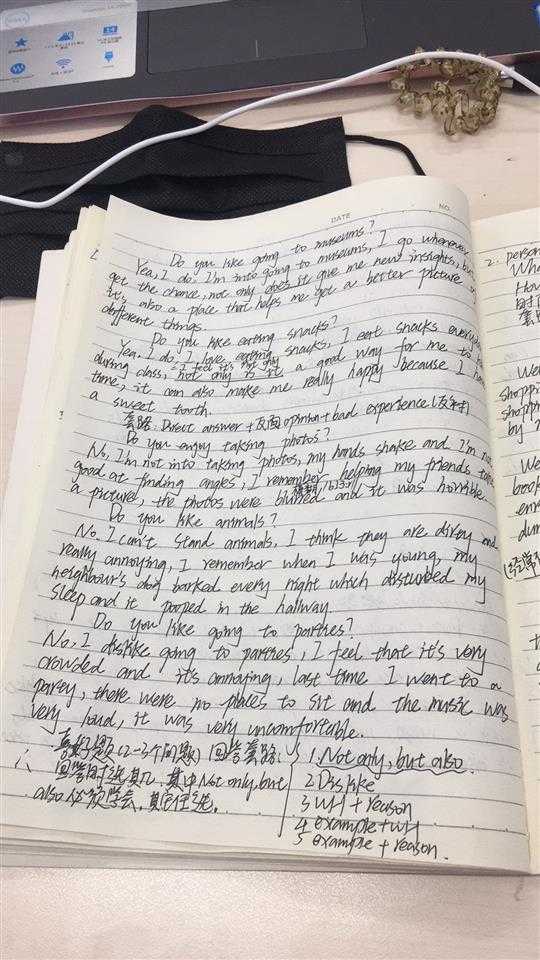 DATE
NO.
Do you like going to museums?
Yea, I do, I'm into going to museums, I go whenever I
get the chance, not only does it give me new insights, but
it's also a place that helps me get a better picture of
different things.
Do you like eating snacks?
Yea, I do, I love eating snacks, I eat snacks everyday
I feel it's not only
during class, not only is it a good way for me to
time, it can also make me really happy because I have
a sweet tooth.
套路: Direct answer + 反面 opinion + bad experience
Do you enjoy taking photos?
No, I'm not into taking photos, my hands shake and I'm not
good at finding angles, I remember helping my friends take
模糊 /blɜːr/
a picture, the photos were blurred and it was horrible
Do you like animals?
No, I can't stand animals, I think they are dirty and
really annoying, I remember when I was young, my
neighbour's dog barked every night which disturbed my
sleep and it pooped in the hallway
Do you like going to parties?
No, I dislike going to parties, I feel that it's very
crowded and it's annoying, last time I went to a
party, there were no places to sit and the music was
very loud, it was very uncomfortable.
喜好题 (2-3个问题) 回答套路
回答时 其中 Not only, but
also 必须学会, 其它任选.
1. Not only, but also.
2 Dislike
3 WH + reason
4 example + WH
5 example + reason.
2. person
Whe
How
时间
套路
We
shoppin
shoppin
by
We
book
env
dum